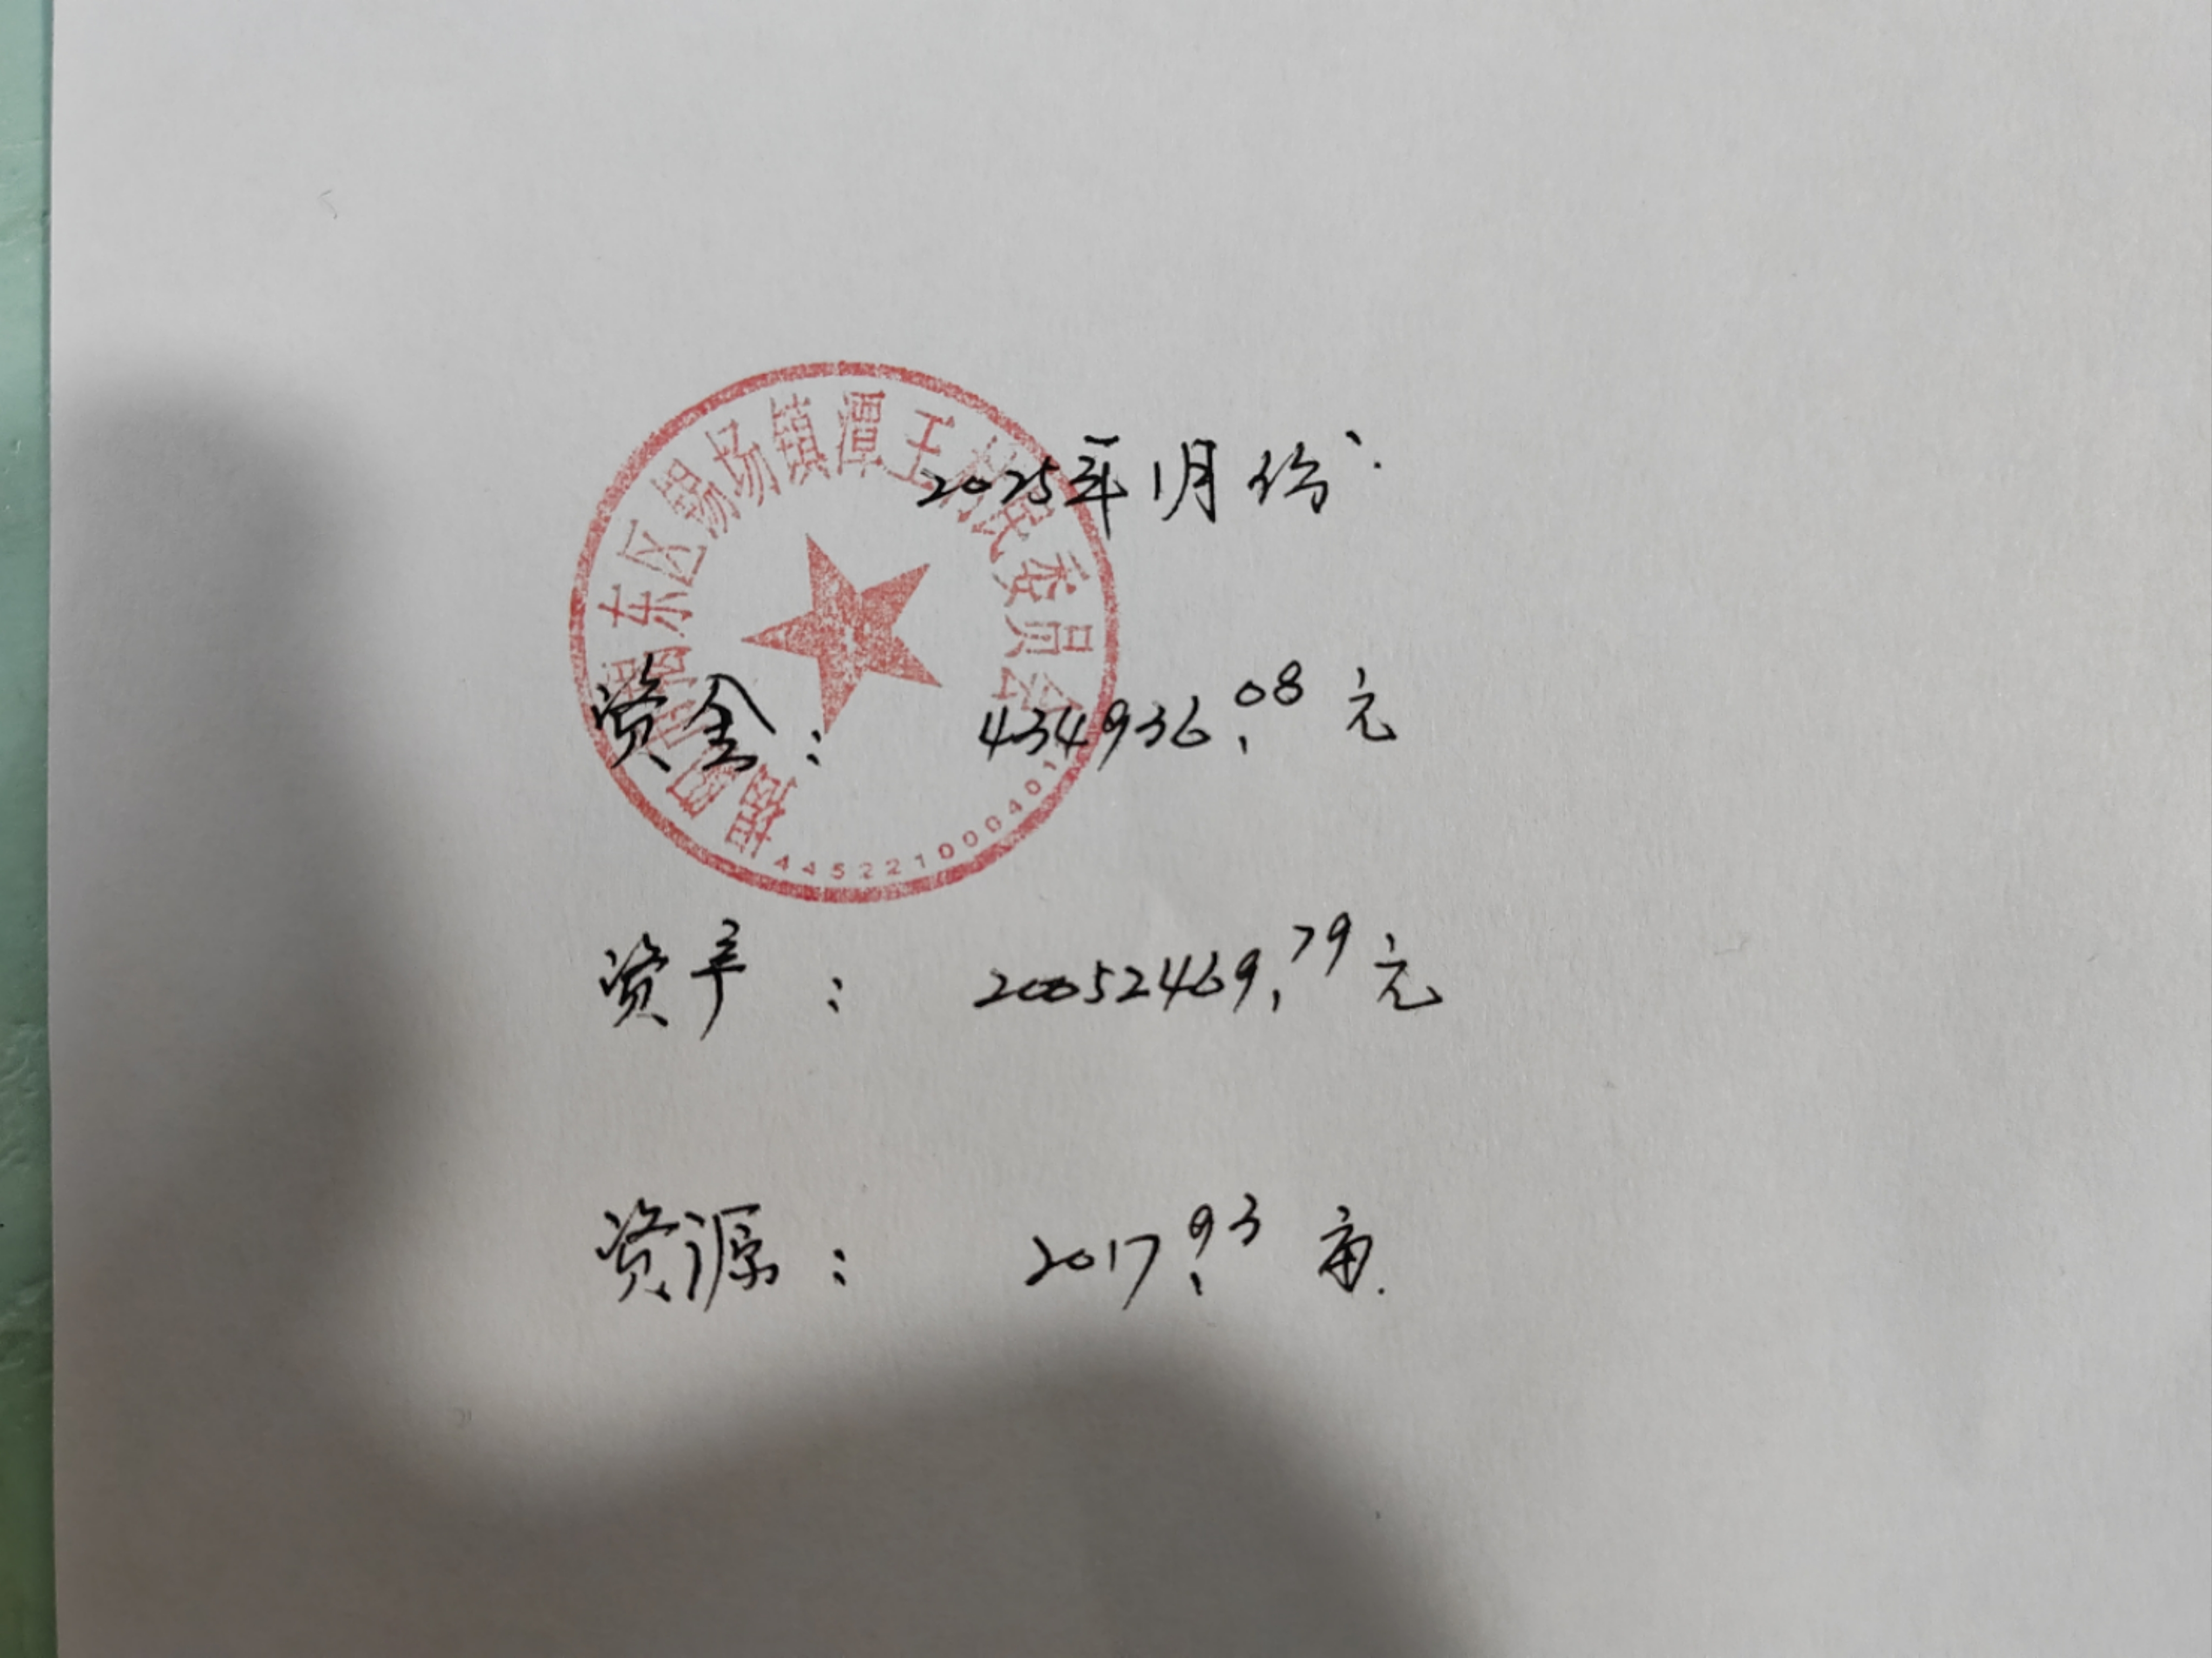 揭阳市揭东区锡场镇潭王村民委员会
2025年1月份：
资金： 434936.08元
445221000401
资产： 20052469.79元
资源： 2017.93亩.